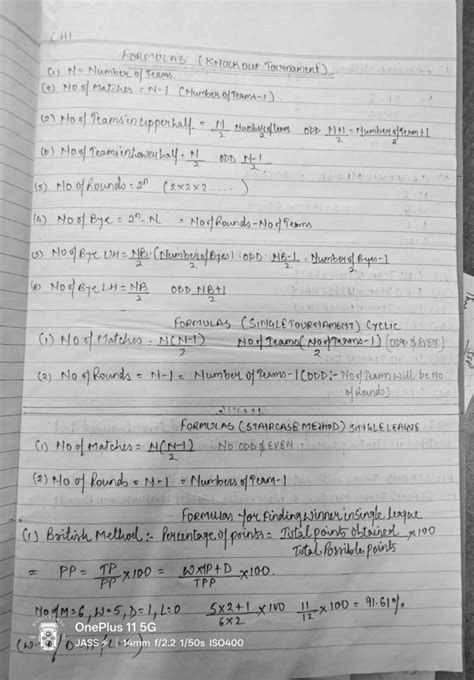 CH1
FORMULAS (Knockout Tournament)
(1) N = Number of Teams
(2) No of Matches = N-1 (Number of Teams-1)
(2) No of Teams in Upper half = N/2 Number of teams ODD N+1/2 = Number of Team+1/2
(b) No of Teams in Lower half = N/2 ODD N-1/2
(3) No of Rounds = 2ⁿ (2x2x2.....)
(4) No of Bye = 2ⁿ-N = No of Rounds-No of Teams
(5) No of Bye UH = NB/2 (Number of Byes) ODD NB-1/2 = Number of Byes-1/2
No of Bye LH = NB/2 ODD NB+1/2
FORMULAS (SINGLE TOURNAMENT) Cyclic
(1) No of Matches = N(N-1)/2 No of Teams (No of Teams-1)/2 (ODD & EVEN)
(2) No of Rounds = N-1 = Number of Teams-1 (ODD:- No of Team will be No
of Rounds)
FORMULAS (STAIRCASE METHOD) SINGLE LEAGUE
(1) No of Matches = N(N-1)/2 NO ODD & EVEN
(2) No of Rounds = N-1 = Numbers of Team-1
Formulas for finding winner in single league
(1) British Method :- Percentage of points = Total points obtained/Total Possible points x100
= PP = TP/PP x100 = WxP+D/TPP x100
No of M=6, W=5, D=1, L=0 5x2+1/6x2 x100 11/12 x100 = 91.61%
OnePlus 11 5G
JASS 14mm f/2.2 1/50s ISO400